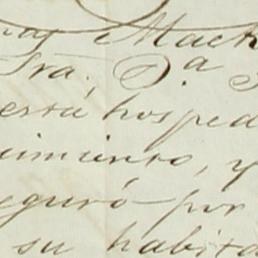 Mach
Sra. D.ª
está hosped
imiento, y
eguró por
su habita